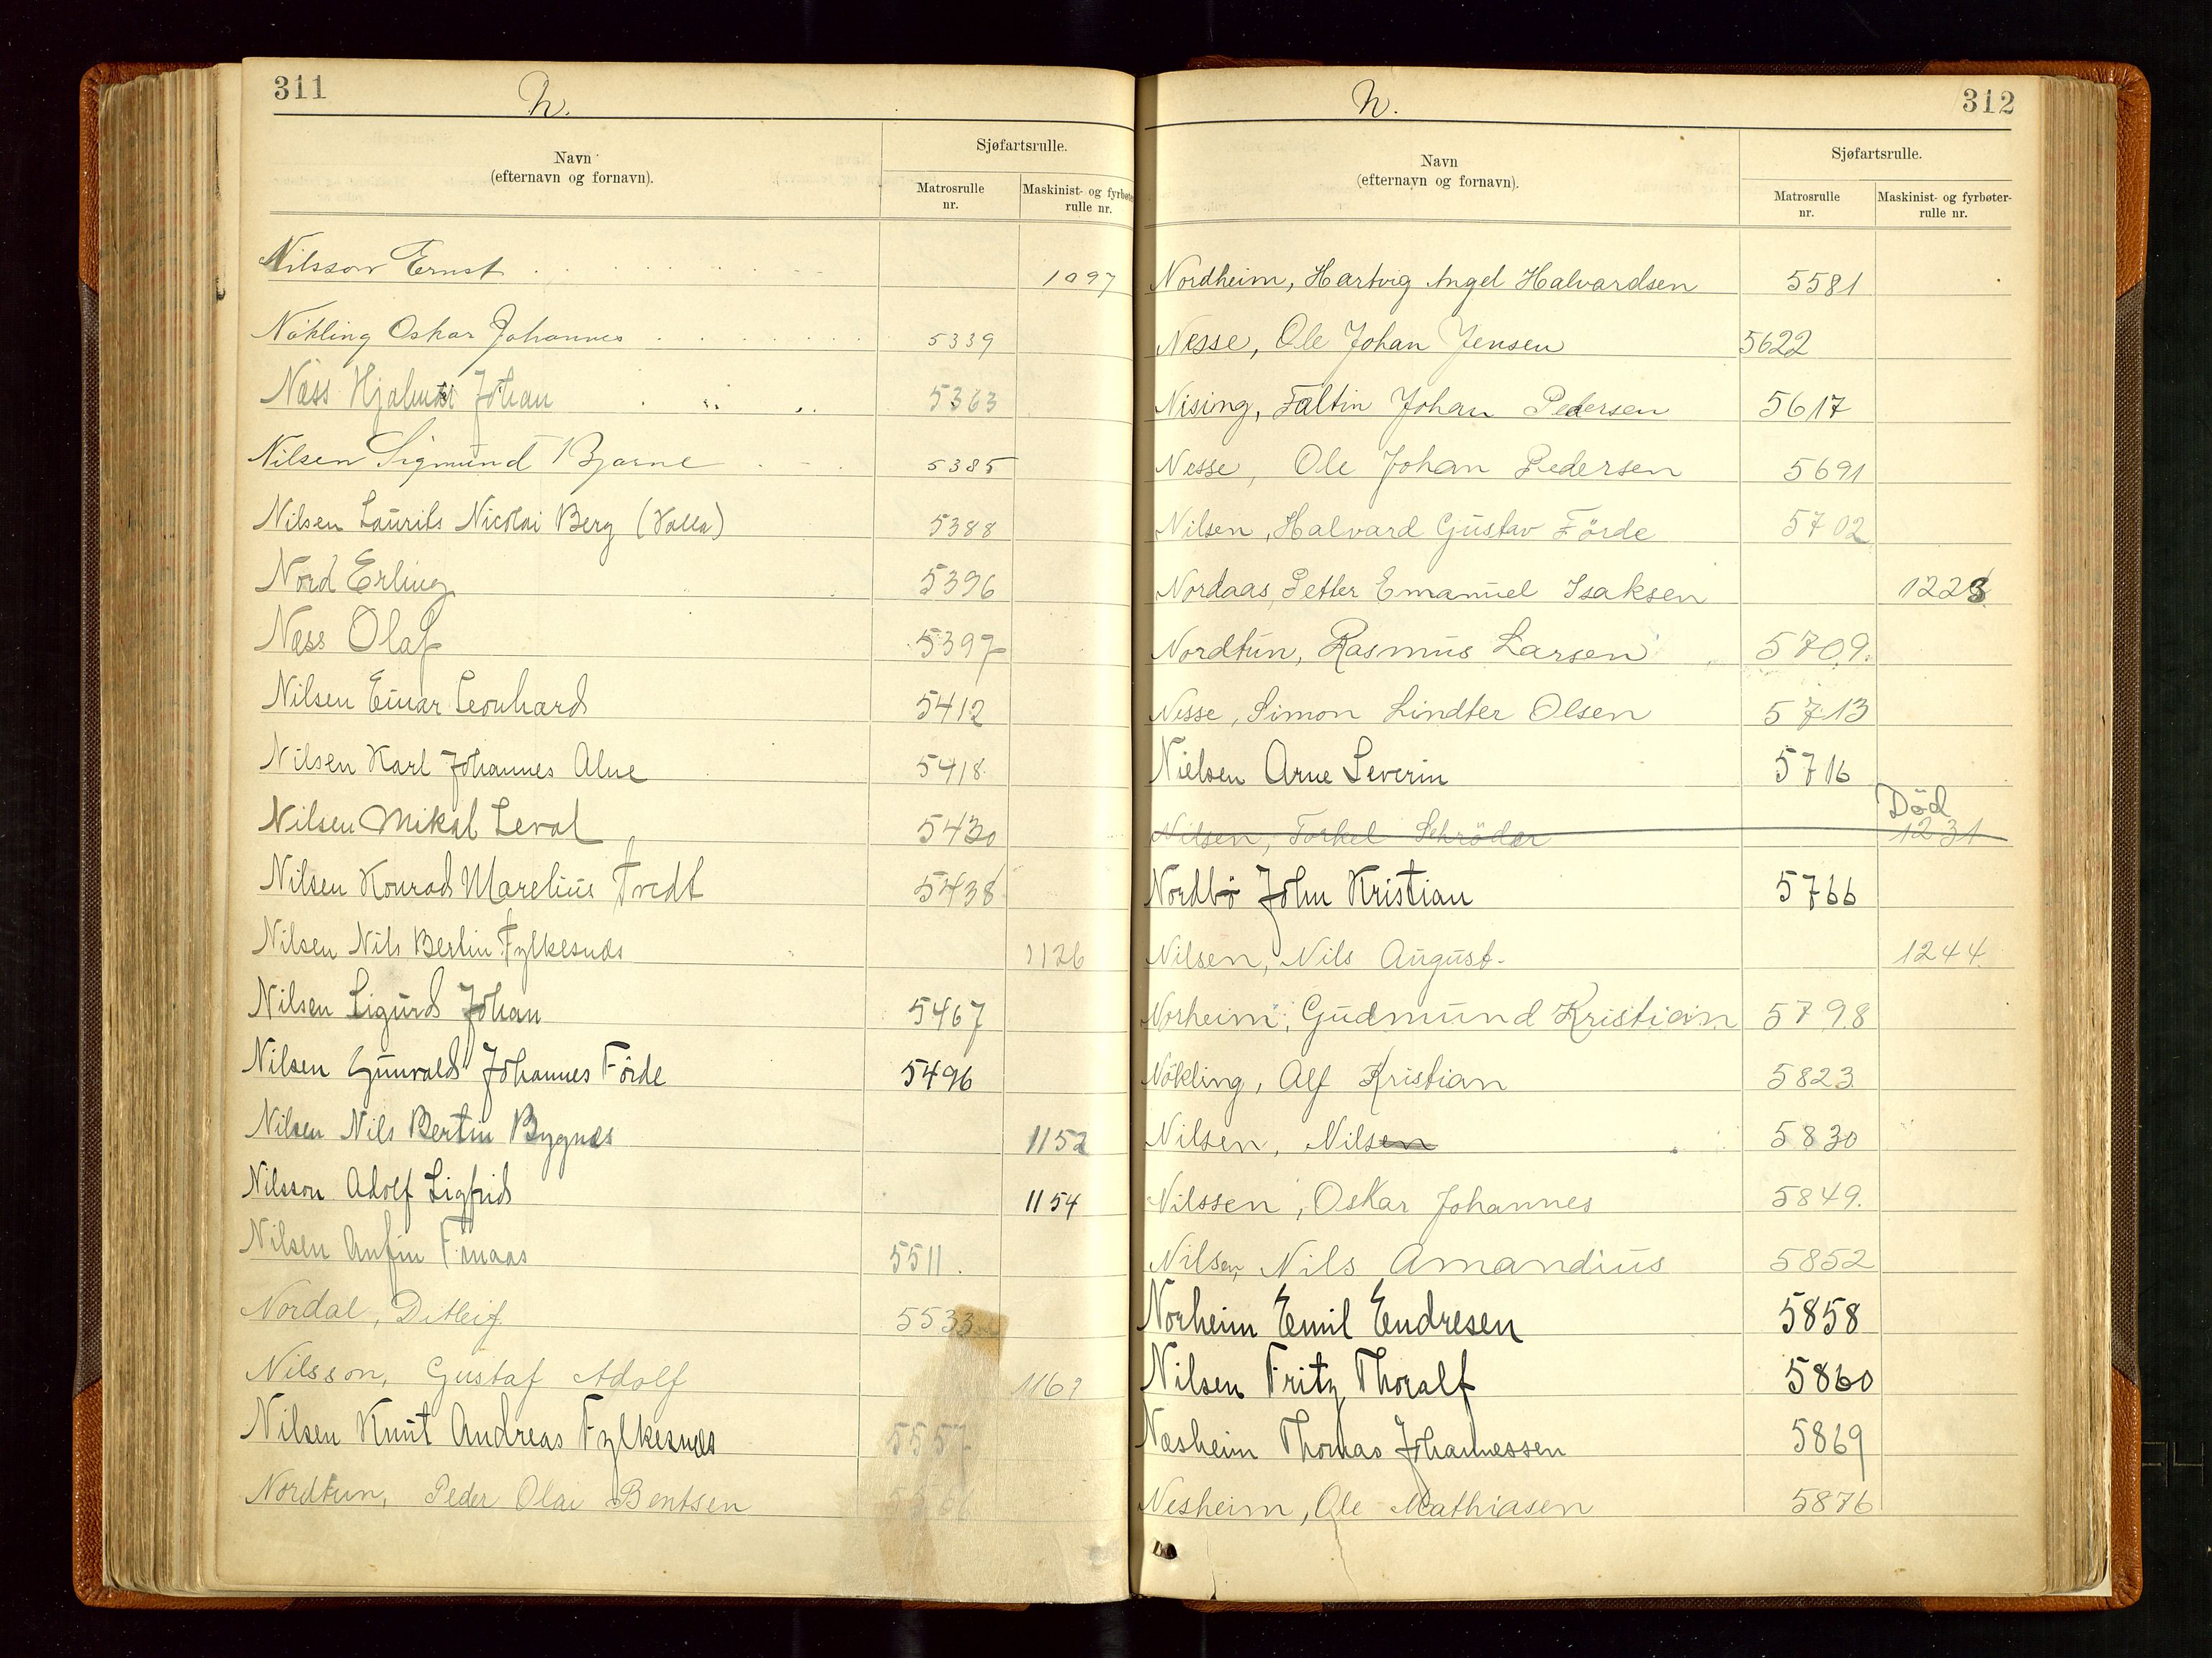 311
N.
Navn
(efternavn og fornavn).
Sjøfartsrulle.
Matrosrulle
nr.
Maskinist- og fyrbøter
rulle nr.
Nilsson Ernst 1097
Nökling Oskar Johannes 5339
Næss Hjalmar Johan 5363
Nilsen Sigmund Bjarne 5385
Nilsen Laurits Nicolai Berg (Valla) 5388
Nord Erling 5396
Næss Olaf 5397
Nilsen Einar Leonhard 5412
Nilsen Karl Johannes Alne 5418
Nilsen Mikal Leval 5430
Nilsen Konrad Marelius Tvedt 5438
Nilsen Nils Berlin Fylkesnæs 1126
Nilsen Sigurd Johan 5467
Nilsen Gunvald Johannes Förde 5496
Nilsen Nils Bertin Bygnæs 1152
Nilsson Adolf Sigfrid 1154
Nilsen Anfin 5511
Nordal, Ditleif 5533
Nilsson, Gustaf Adolf
Nilsen Knut Andreas Fylkesnæs 5557
Nordtun, Peder Olai Bentsen
312
N.
Navn
(efternavn og fornavn).
Sjøfartsrulle.
Matrosrulle
nr.
Maskinist- og fyrbøter-
rulle nr.
Nordheim, Hartvig Angel Halvardsen 5581
Nesse, Ole Johan Jensen 5622
Nising, Faltin Johan Pedersen 5617
Nesse, Ole Johan Pedersen 5691
Nilsen, Halvard Gustav Förde 5702
Nordaas, Petter Emanuel Isaksen 1223
Nordtun, Rasmus Larsen 5709.
Nesse, Simon Lindter Olsen 5713
Nielsen Arne Severin 5716
Död
Nilsen, Torkel Schröder 1231
Nordbö John Kristian 5766
Nilsen, Nils August. 1244.
Norheim, Gudmund Kristian 5798
Nökling, Alf Kristian 5823.
Nilsen, Nilsen 5830
Nilssen, Oskar Johannes 5849.
Nilsen, Nils Amandius 5852
Norheim Emil Endresen 5858
Nilsen Fritz Thoralf 5860
Næsheim Thomas Johannessen 5869
Nesheim, Ole Mathiasen 5876